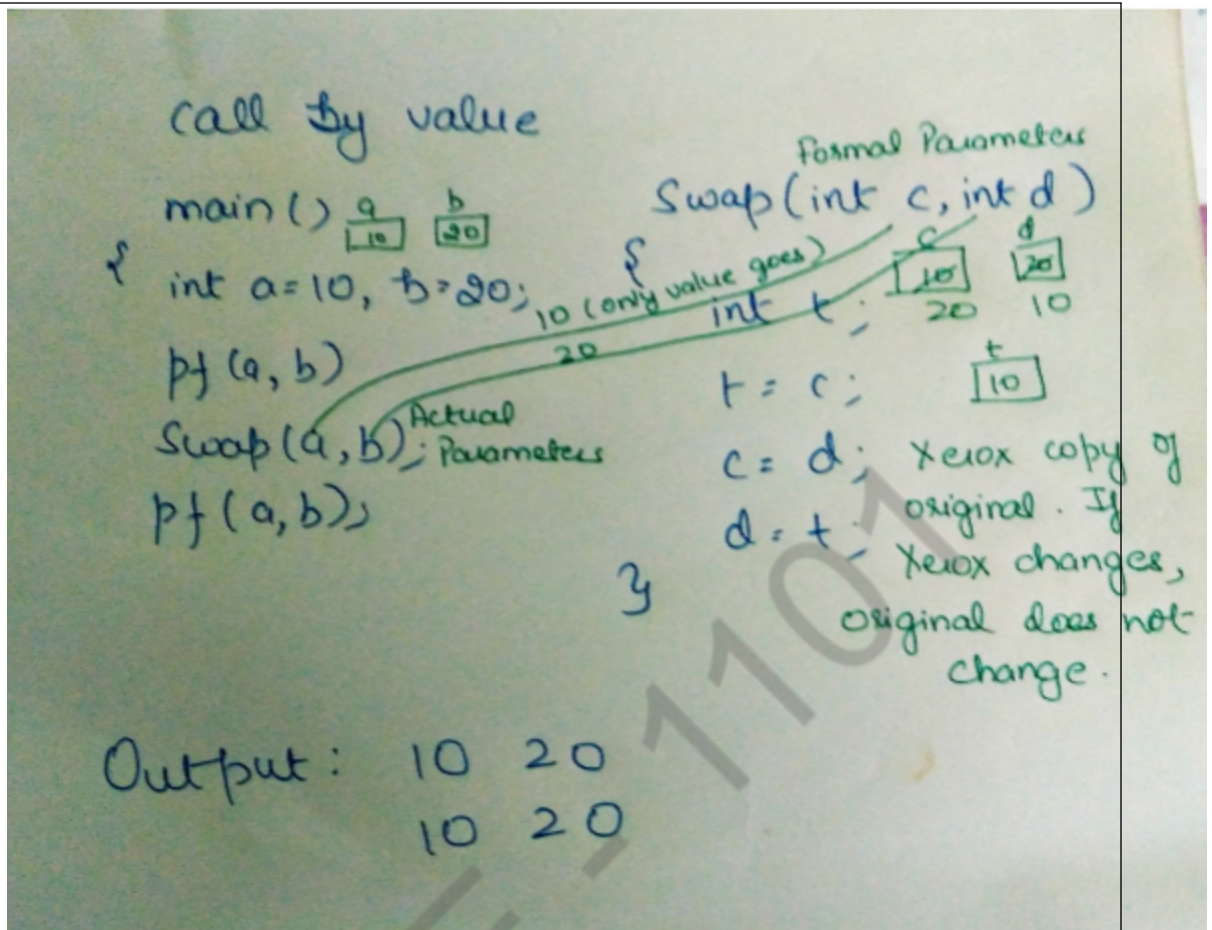 Call By value
main()
a b
10 20
{
int a=10, b=20;
pf(a,b)
Swap(a,b); Actual Parameters
pf(a,b);
10 (only value goes)
20
Formal Parameters
Swap(int c, int d)
{
c d
10 20
20 10
int t;
t
10
t = c;
c = d;
d = t;
}
Xerox copy of
original. If
Xerox changes,
original does not
change.
Output: 10 20
10 20
1101